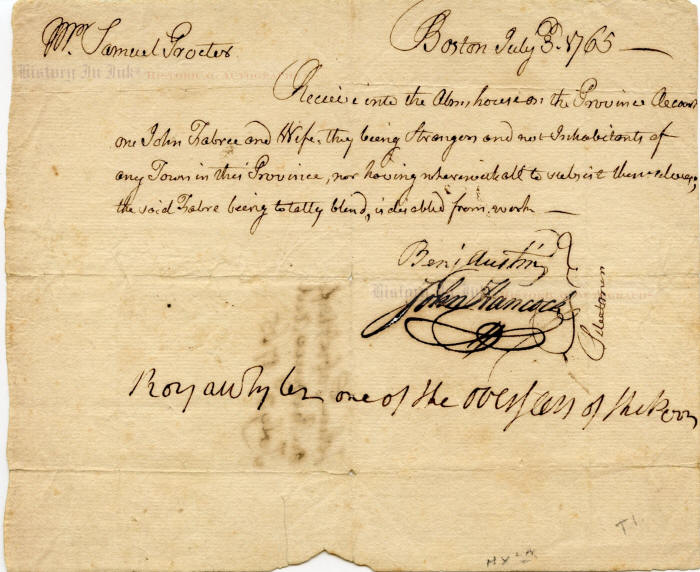 Mr. Samuel Procter
Boston July 3d. 1765
History In Ink HISTORICAL AUTOGRAPHS
Receive into the Alms house on the Province Account
one John Fabree and Wife, they being Strangers and not Inhabitants of
any Town in this Province, nor having wherewithall to subsist themselves,
the said Fabre being totally blind, is disabled from work
Benj Austin
History In Ink HISTORICAL AUTOGRAPHS
John Hancock
Selectmen
Royall Tyler one of the overseers of the Poor
T1.